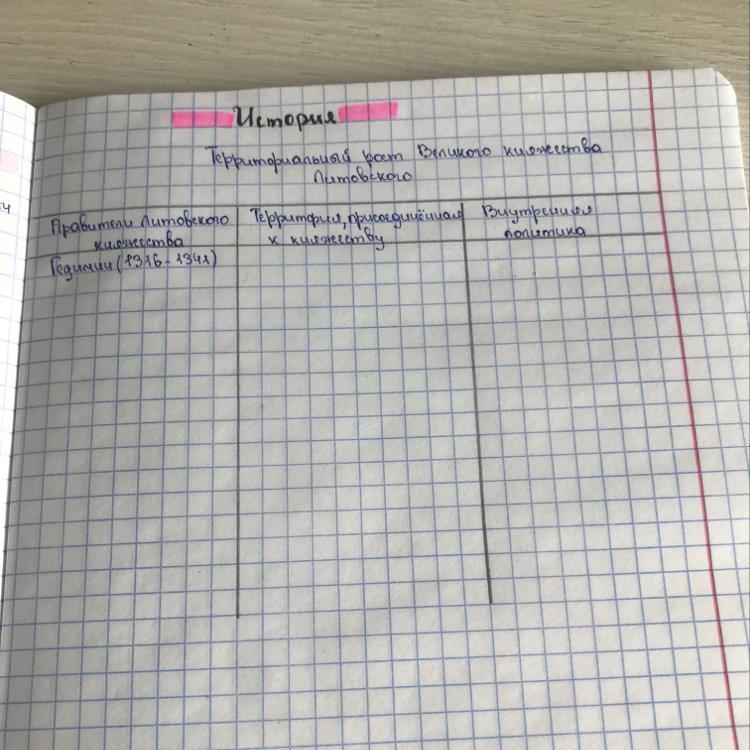 История
Территориальный рост Великого княжества
Литовского
Правители Литовского
княжества
Территория, присоединённая
к княжеству
Внутренняя
политика
Гедимин (1316-1341)